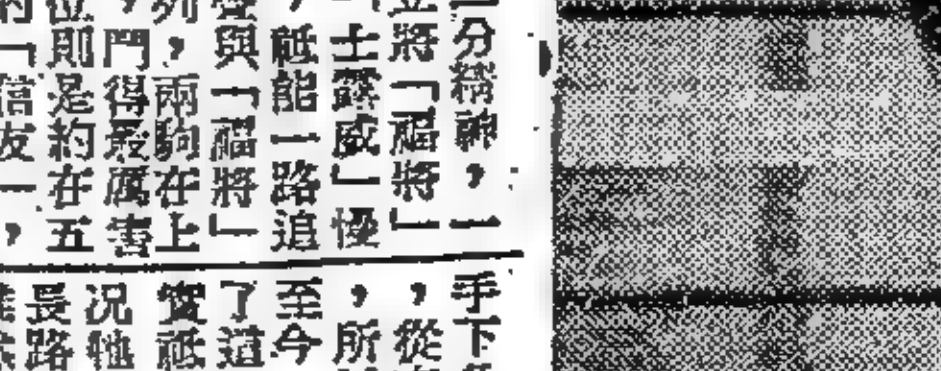 分精神，一
將「福將」
「士露威」慢
，祗能一路追
與「福將」
列，兩駒在上
，門得最厲害
位則是約在五
「信友」，
手下
，從
，所
至今
了這
實祗
况牠
長路